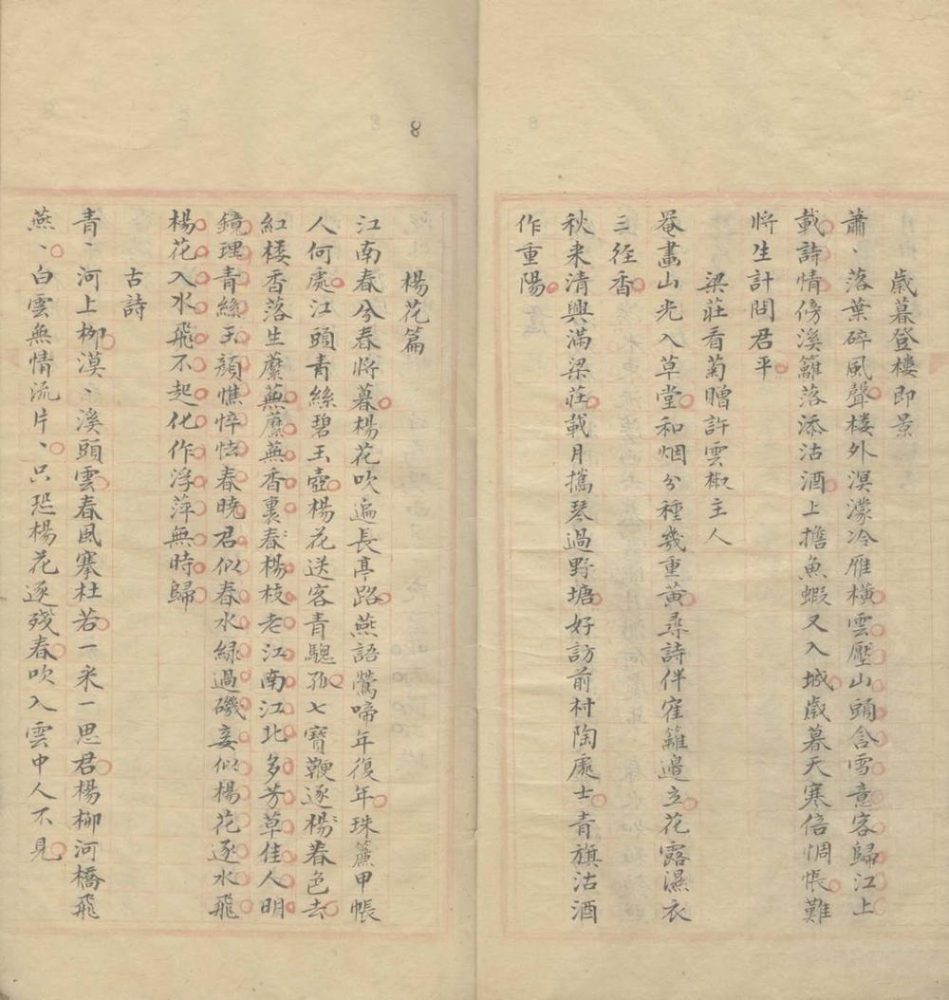 歲暮登樓即景
蕭、落葉碎風聲楼外溟濛冷雁橫雲壓山頭含雪意客歸江上
載詩情傍溪籬落添沽酒上擔魚蝦又入城歲暮天寒倍惆悵難
將生計問君平
梁莊看菊贈許雲椒主人
菴畫山光入草堂和烟分種幾重黃尋詩伴寉籬邊立花露濕衣
三徑香
秋来清興滿梁莊載月攜琴過野塘好訪前村陶處士青旗沽酒
作重陽
8
楊花篇
江南春兮春將暮楊花吹遍長亭路燕語鶯啼年復年珠簾甲帳
人何處江頭青絲碧玉壺楊花送客青驄孤七寶鞭逐楊春色去
紅楼香落生蘼蕪蘼蕪香裏春楊枝老江南江北多芳草佳人明
鏡理青絲玉顏憔悴怯春曉君似春水綠過磯妾似楊花逐水飛
楊花入水飛不起化作浮萍無時歸
古詩
青、河上栁漠、溪頭雲春風搴杜若一采一思君楊柳河橋飛
燕、白雲無情流片、只恐楊花逐殘春吹入雲中人不見